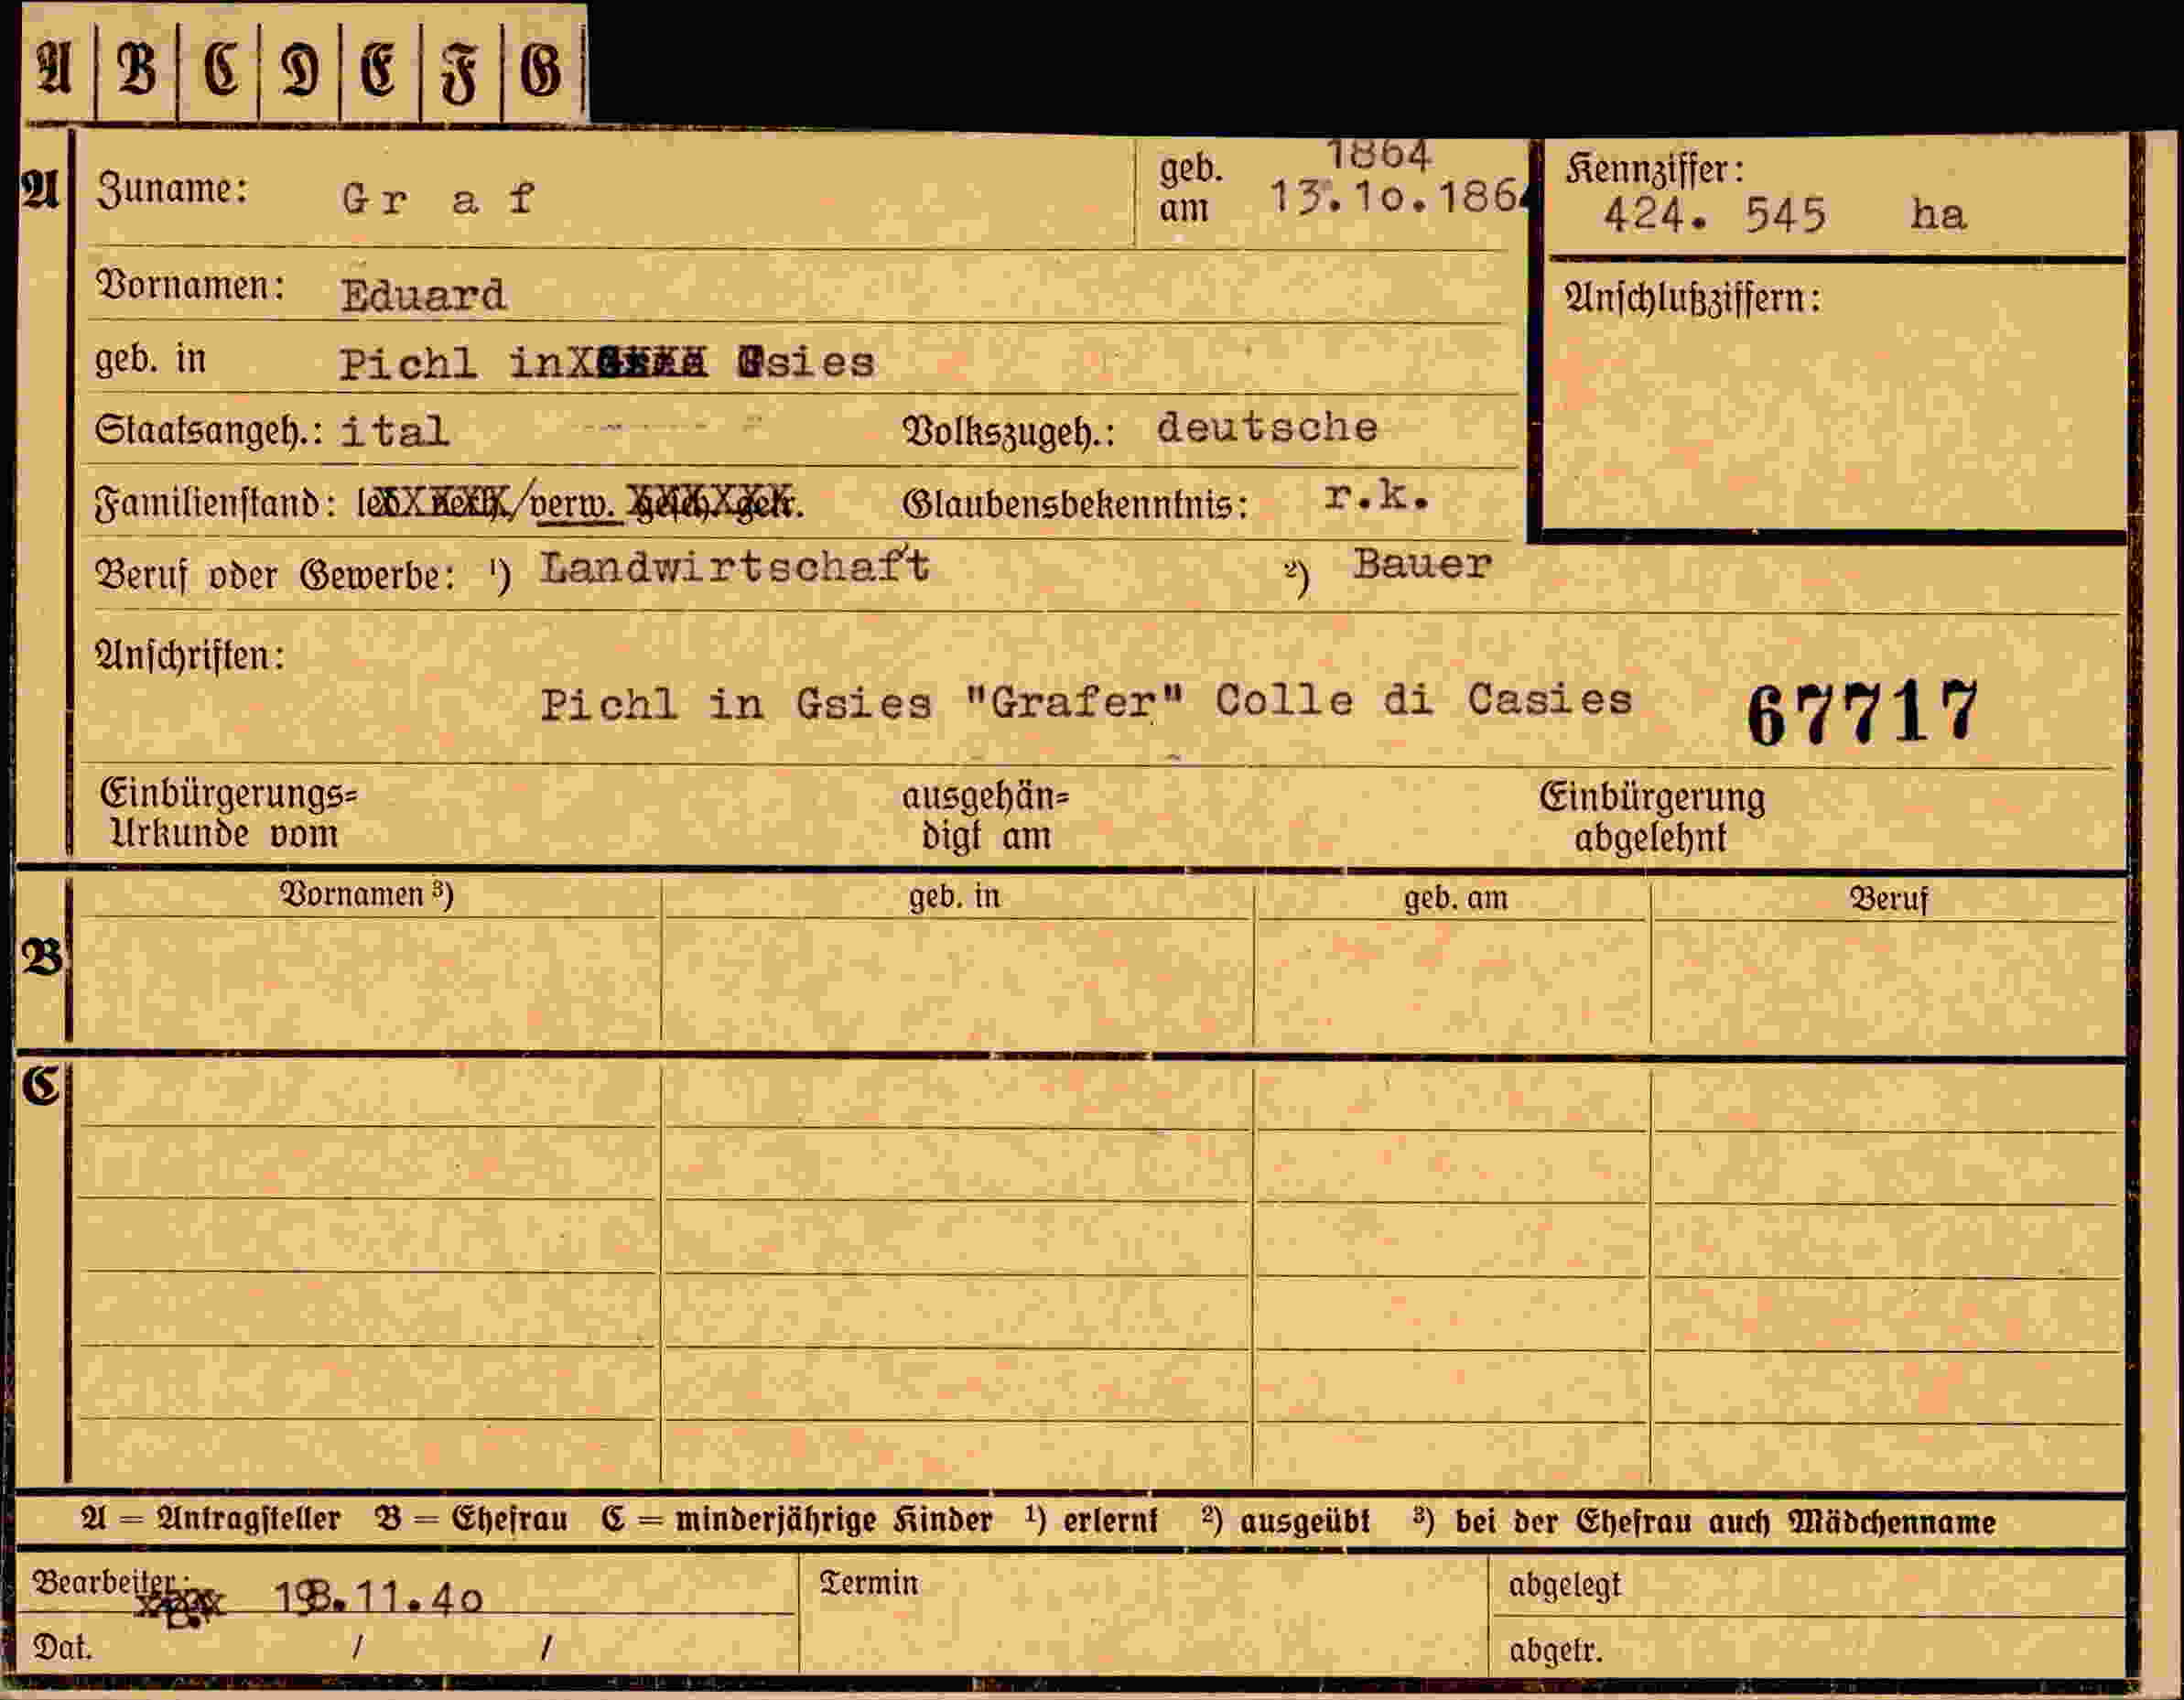 A B C D E F G
1864
A Zuname: Gr a f geb. am 13.10.1864 Kennziffer: 424. 545 ha
Vornamen: Eduard Anschlußziffern:
geb. in Pichl in Gsies
Staatsangeh.: ital Volkszugeh.: deutsche
Familienstand: led. verh./verw. gesch. getr. Glaubensbekenntnis: r.k.
Beruf oder Gewerbe: ¹) Landwirtschaft ²) Bauer
Anschriften:
Pichl in Gsies "Grafer" Colle di Casies 67717
Einbürgerungs= ausgehän= Einbürgerung
Urkunde vom digt am abgelehnt
Vornamen ³) geb. in geb. am Beruf
B
C
A = Antragsteller B = Ehefrau C = minderjährige Kinder ¹) erlernt ²) ausgeübt ³) bei der Ehefrau auch Mädchenname
Bearbeiter: .11.40 Termin abgelegt
Dat. / / abgetr.